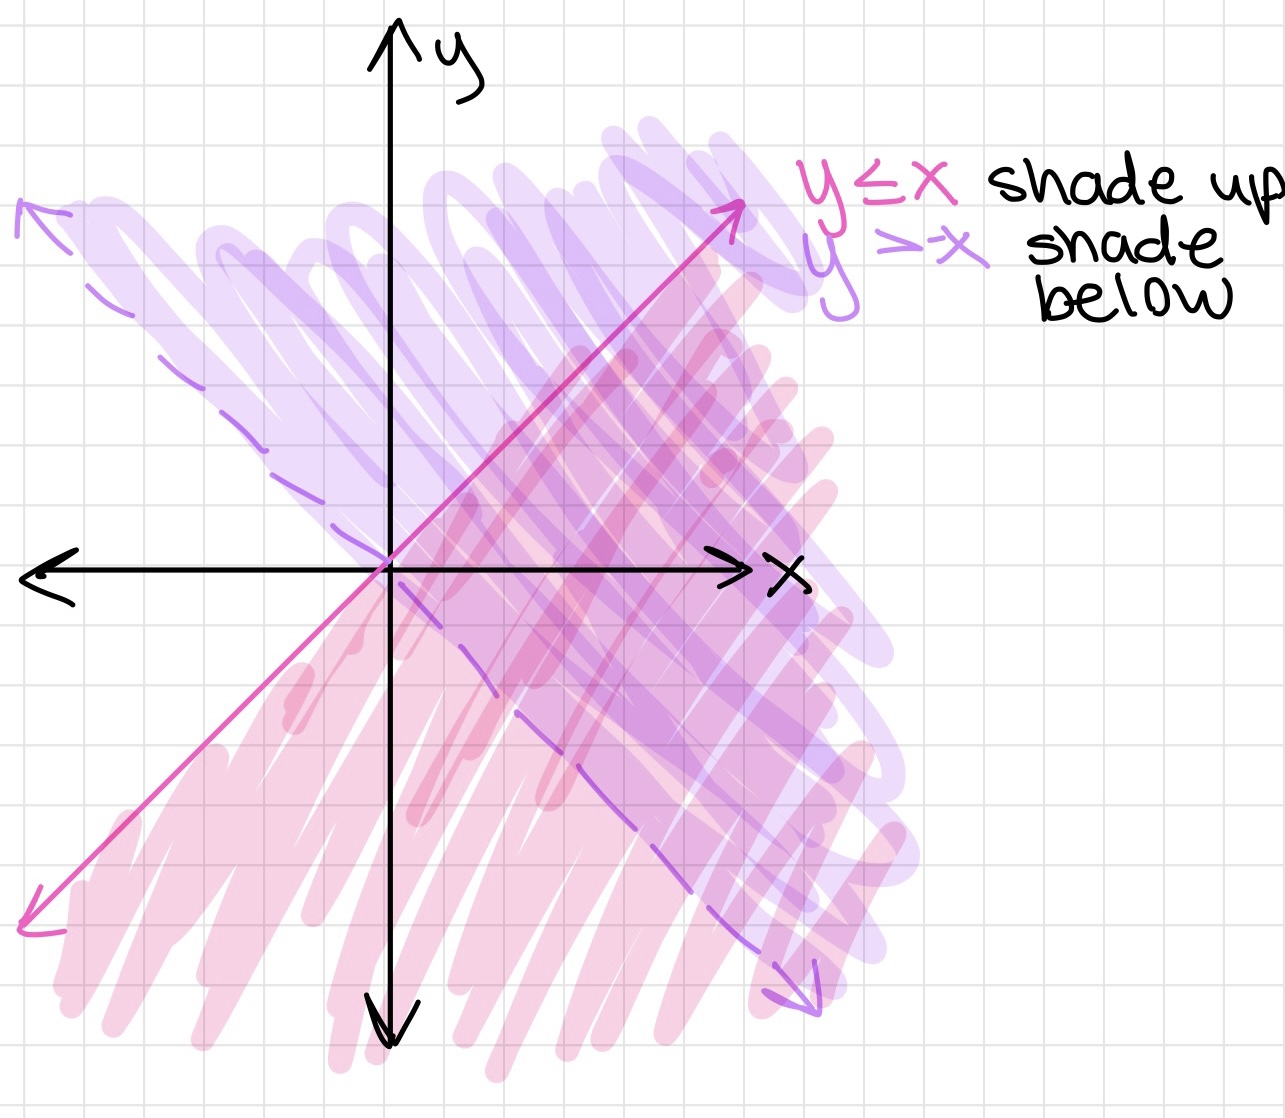 y
y ≤ x shade up
y > -x shade
below
x